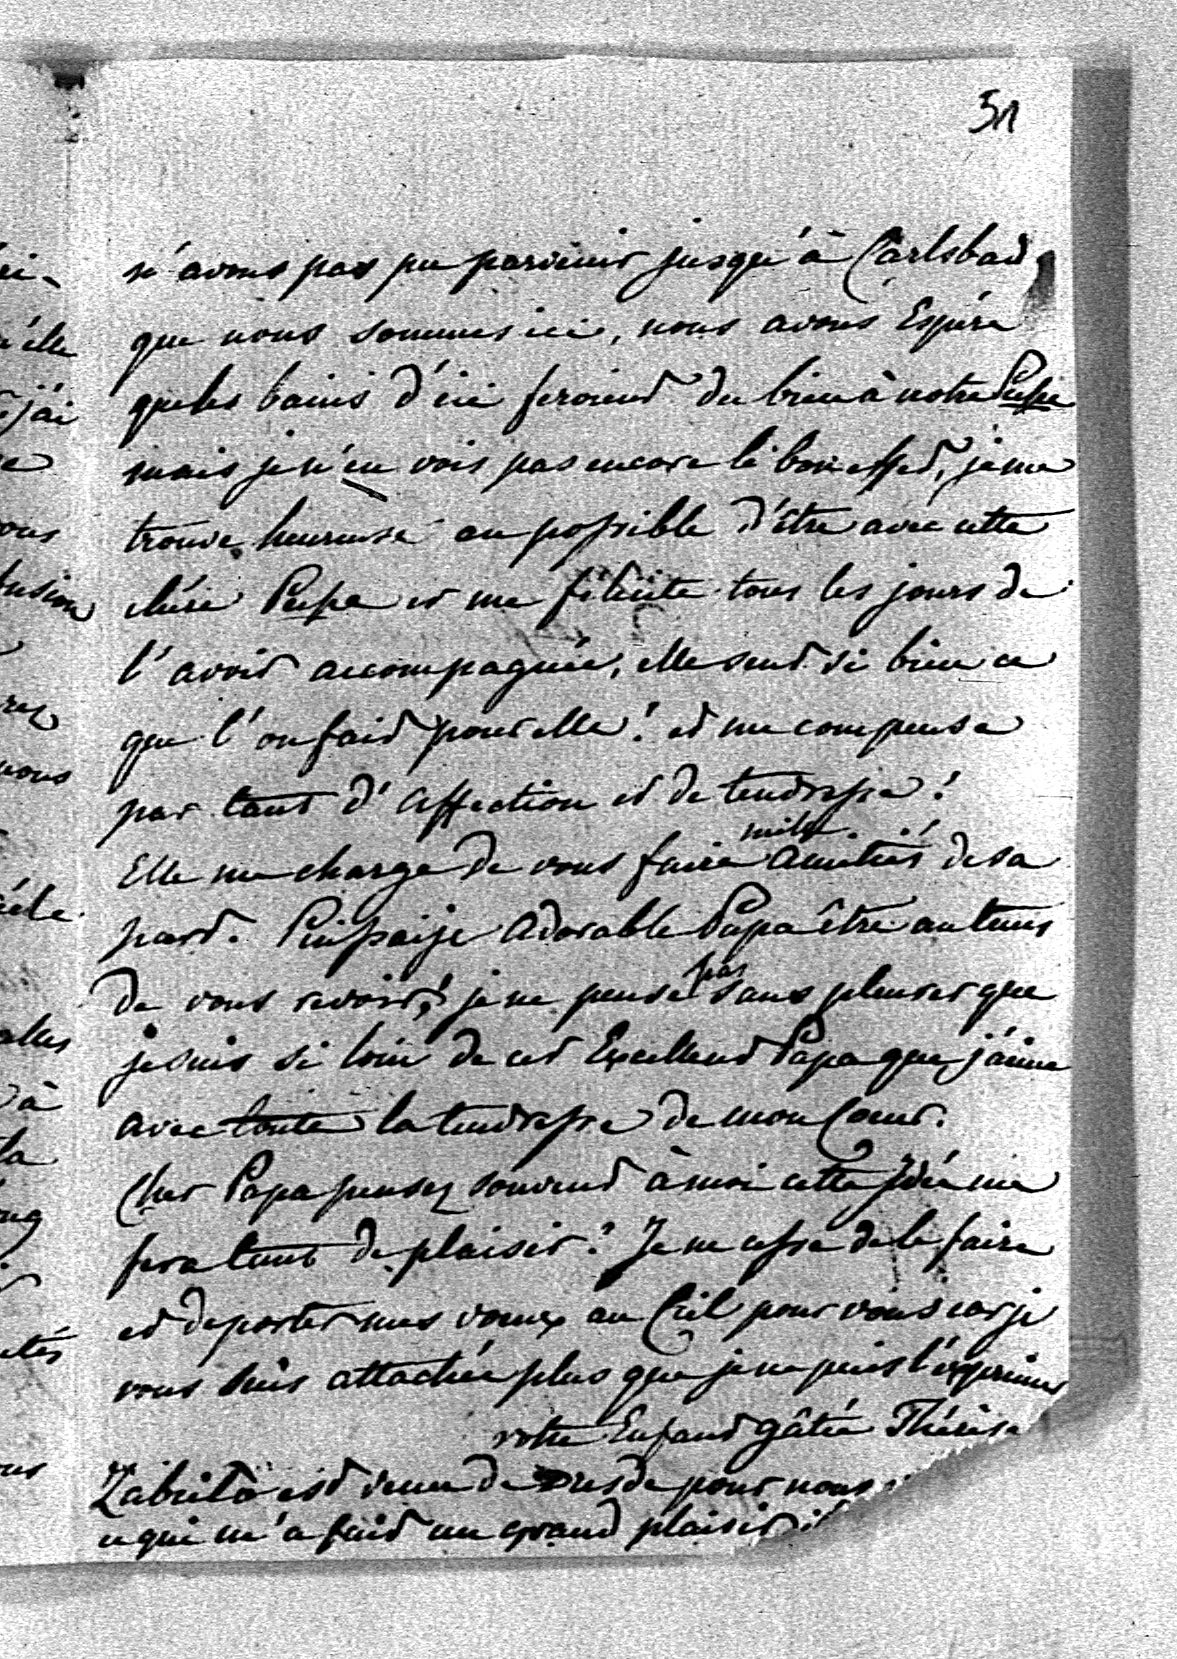 51
n'avons pas pu parvenir jusqu'à Carlsbad
que nous sommes ici, nous avons Espéré
que les bains d'ici feroient du bien à notre Pepe
mais je n'en vois pas encore le bon effet, je me
trouve heureuse au possible d'être avec cette
chére Pepe et me félicite tous les jours de
l'avoir accompagnée, elle sent si bien ce
que l'on fait pour elle! et me compense
par tant d'affection et de tendresse!
Elle me charge de vous faire mille amitiés de sa
part. Puissaije adorable Papa être au tems
de vous revoir! je ne pense pas sans pleurer que
je suis si loin de cet Excellent Papa que j'aime
avec toute la tendresse de mon Coeur.
Cher Papa pensez souvent à moi cette Idée me
fera tant de plaisir! Je ne cesse de le faire
et de porter mes voeux au Ciel pour vous car je
vous suis attachée plus que je ne puis l'exprimer
votre Enfant gâtée Thérèse
Zabiello est venu de Dresde pour nous
ce qui m'a fait un grand plaisir